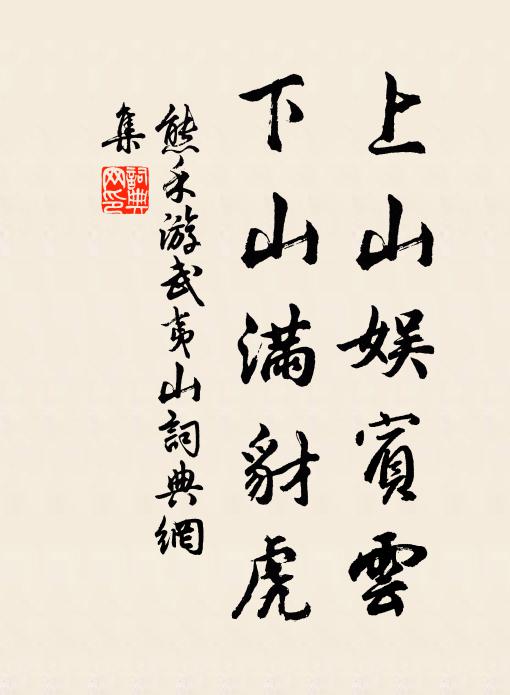 上山娱賓雲
下山滿豺虎
熊禾游武夷山詞典網
集
詞典
网印